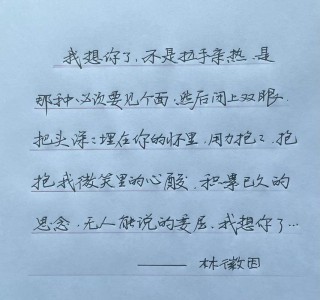 我想你了，不是拉手亲热，是
那种必须要见个面，然后闭上双眼，
把头深深埋在你的怀里，用力抱抱，抱
抱我微笑里的心酸，积累已久的
思念，无人能说的委屈，我想你了…
—— 林徽因